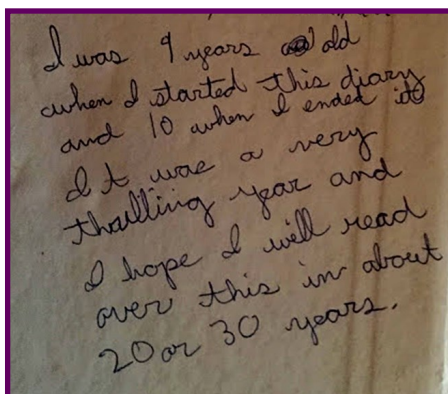 I was 9 years old
when I started this diary
and 10 when I ended it
It was a very
thrilling year and
I hope I will read
over this in about
20 or 30 years.